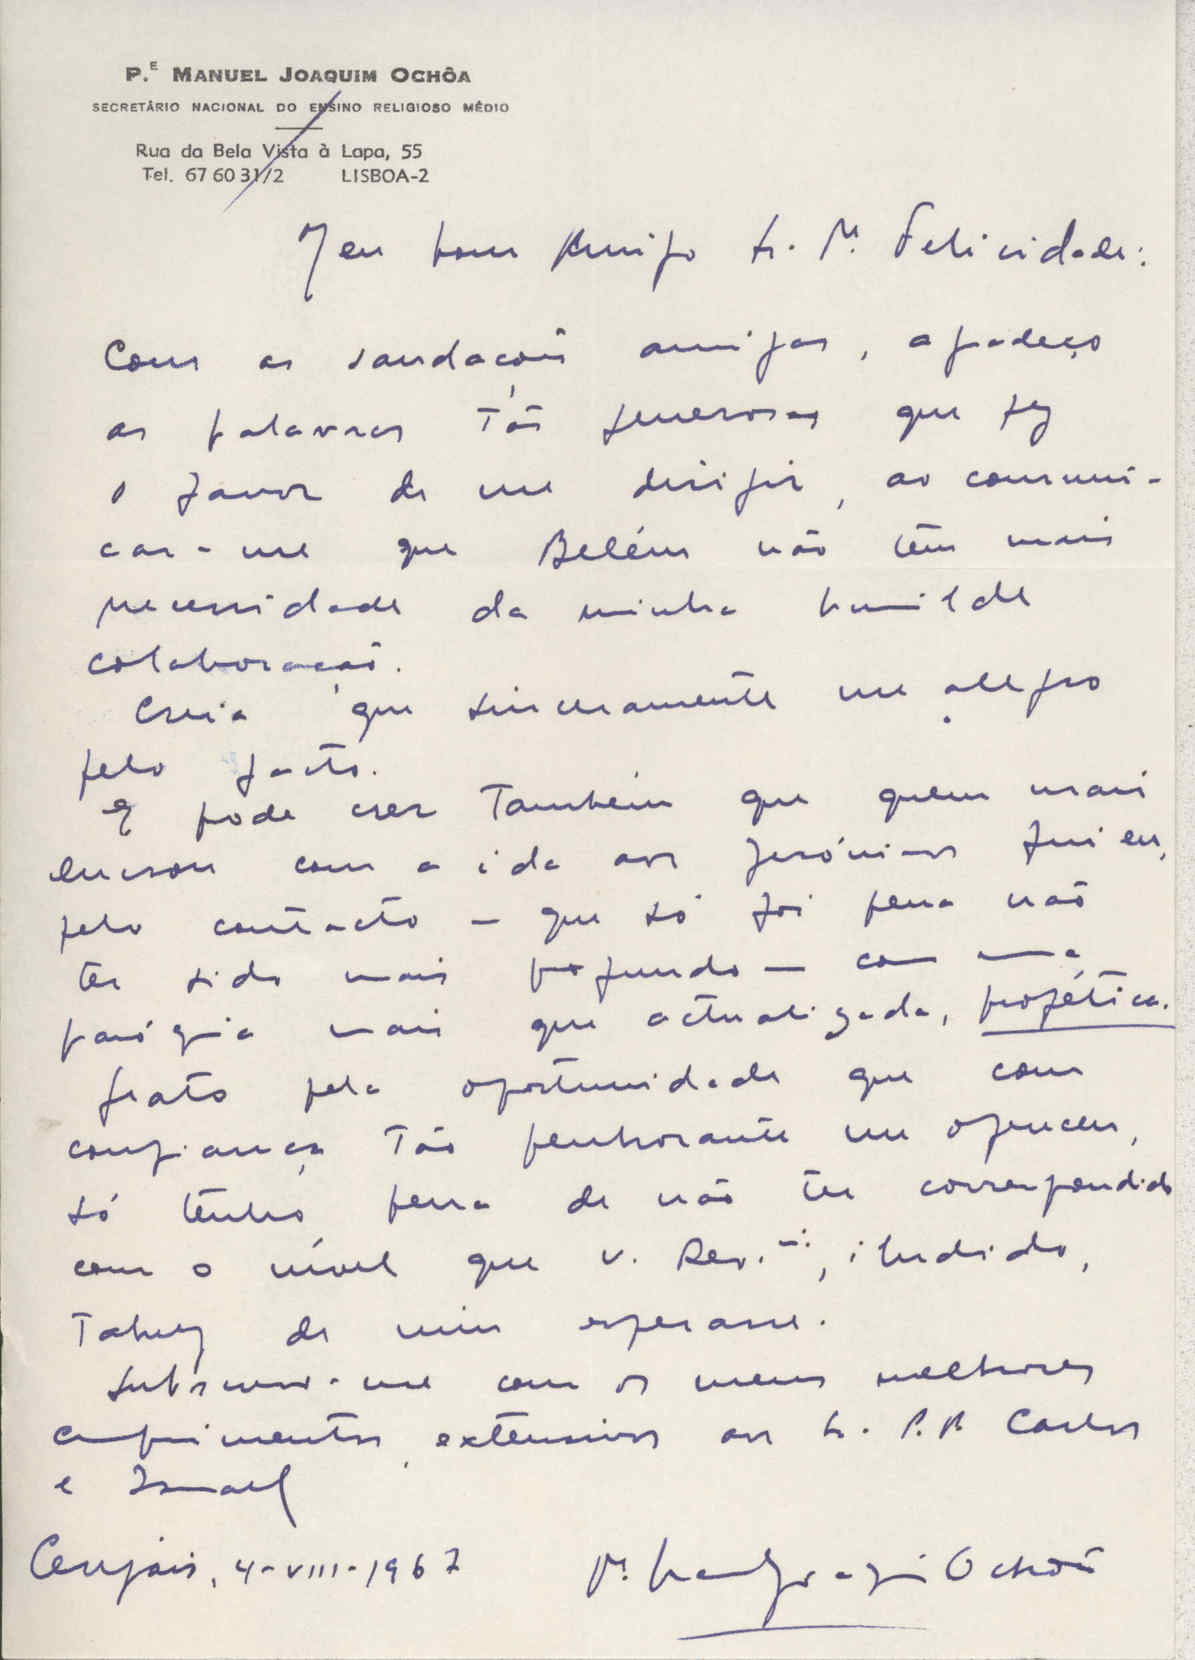 P.E MANUEL JOAQUIM OCHÔA
SECRETÁRIO NACIONAL DO ENSINO RELIGIOSO MÉDIO
Rua da Bela Vista à Lapa, 55
Tel. 67 60 31/2 LISBOA-2
Meu bom Amigo Sr. P. Felicidade:
Com as saudações amigas, agradeço
as palavras tão generosas que fez
o favor de me dirigir, ao comuni-
car-me que Belém não tem mais
necessidade da minha humilde
colaboração.
Creia que sinceramente me alegro
pelo facto.
E pode crer também que quem mais
lucrou com a ida aos Jerónimos fui eu,
pelo contacto - que só foi pena não
ter sido mais profundo - com uma
paróquia mais que actualizada, profética.
Grato pela oportunidade que com
confiança tão penhorante me ofereceu,
só tenho pena de não ter correspondido
com o nível que V. Rev.ma, iludido,
talvez de mim esperasse.
Subscrevo-me com os meus melhores
cumprimentos extensivos aos Sr. P.P. Carlos
e Ismael
Cerejais, 4-VIII-1967
P. Manuel Joaquim Ochôa